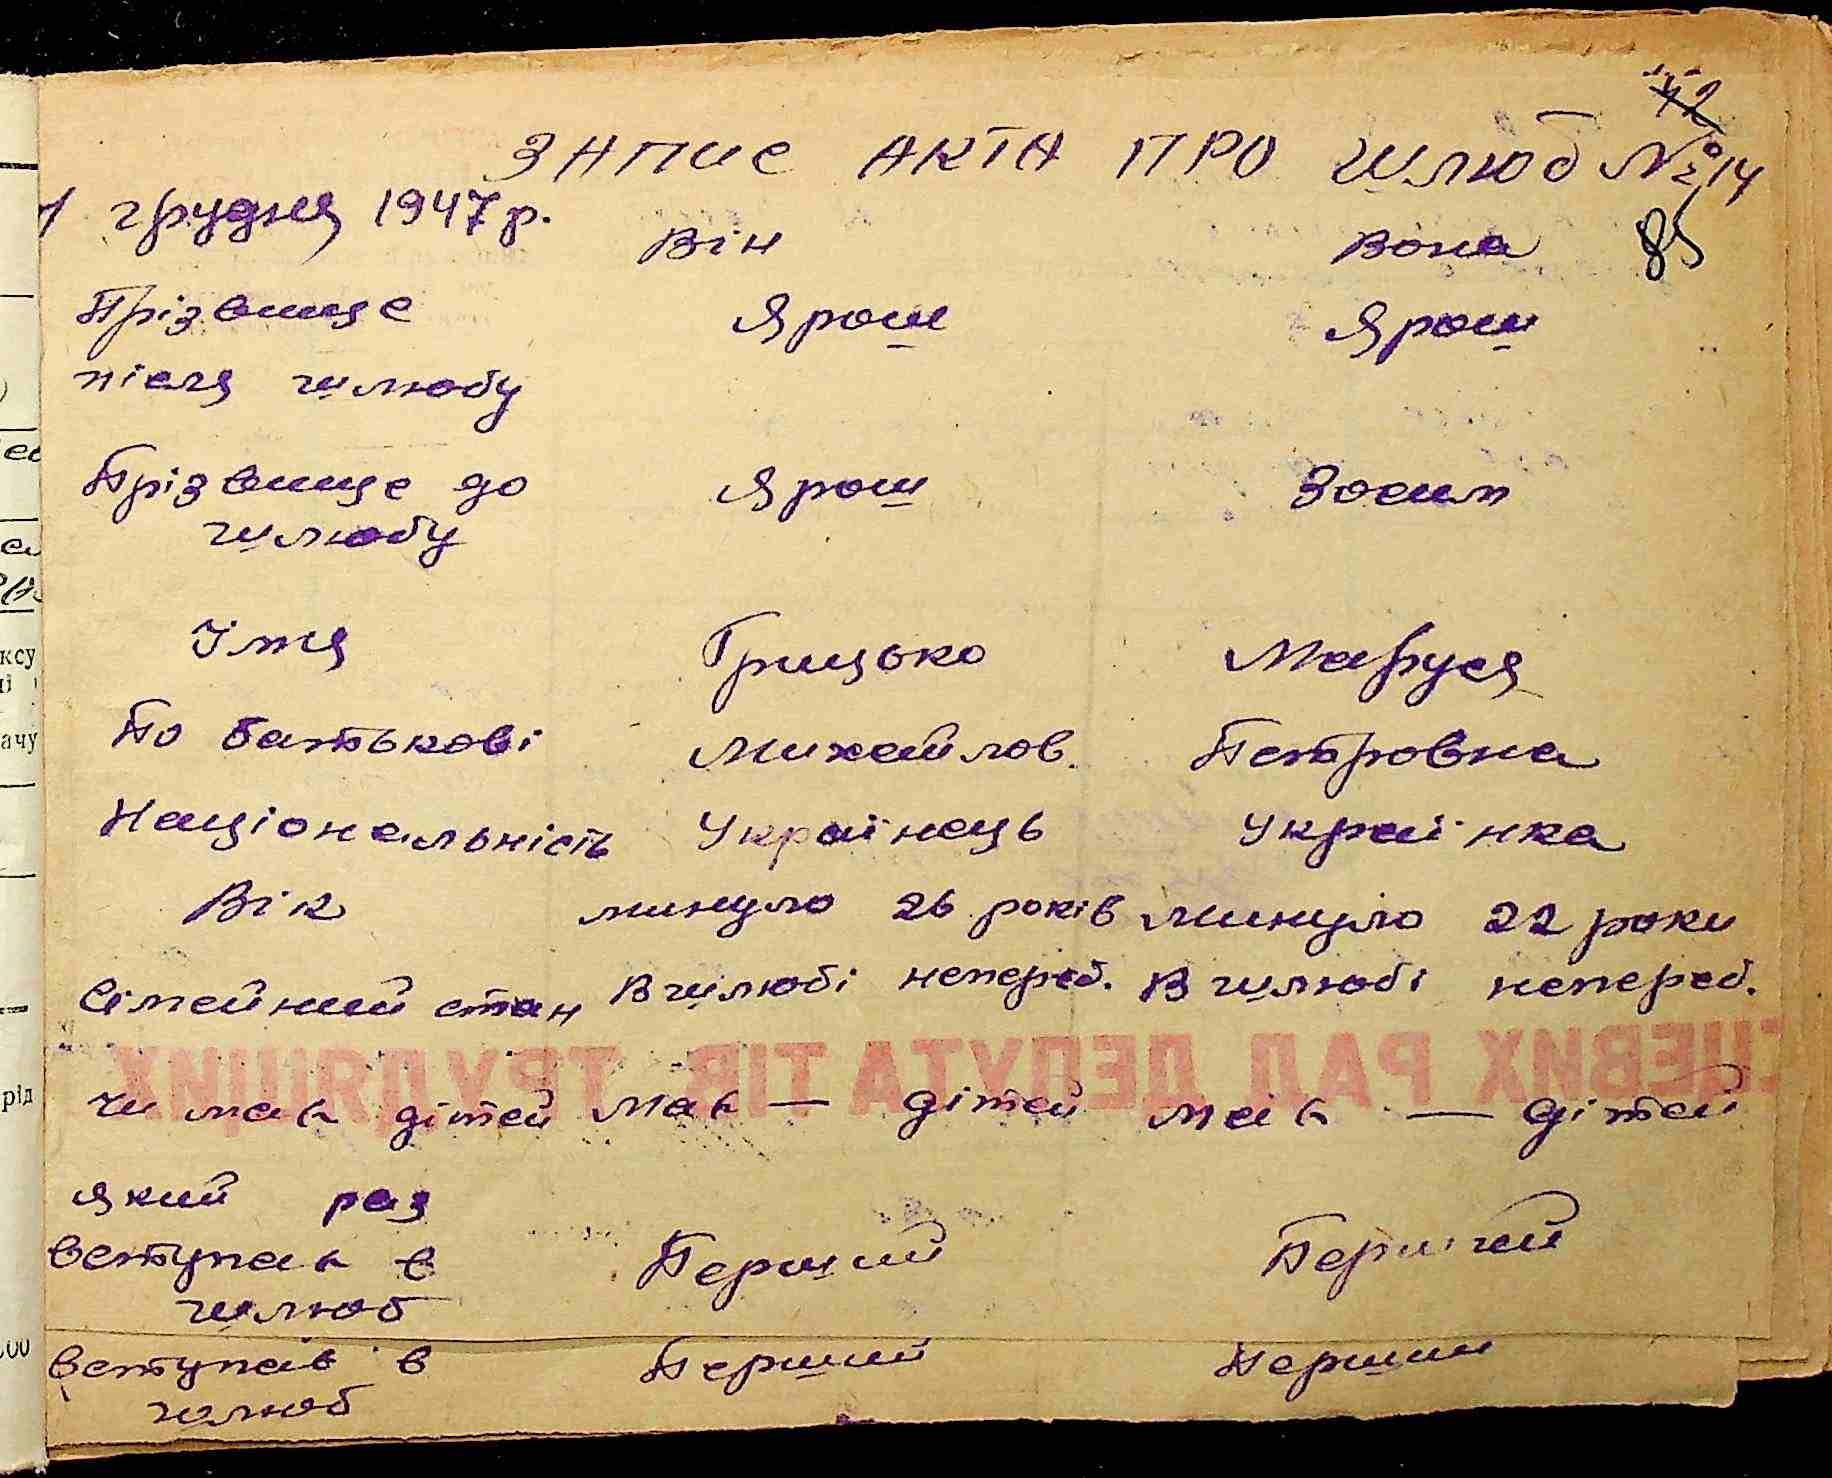 42
ЗАПИС АКТА ПРО ШЛЮБ № 14
1 грудня 1947 р.
Він Вона 85
Прізвище Ярош Ярош
після шлюбу
Прізвище до Ярош Зосим
шлюбу
Імя Грицько Маруся
По батькові Михайлов. Петровна
Національність Українець Українка
Вік минуло 26 років минуло 22 роки
Сімейний стан В шлюбі непереб. В шлюбі непереб.
ЦЕВИХ РАД ДЕПУТАТІВ ТРУДЯЩИХ
Чи мав дітей мав — дітей мав — дітей
який раз
вступав в Перший Перший
шлюб
вступав в Перший Перший
шлюб
ксу
ачу
рід